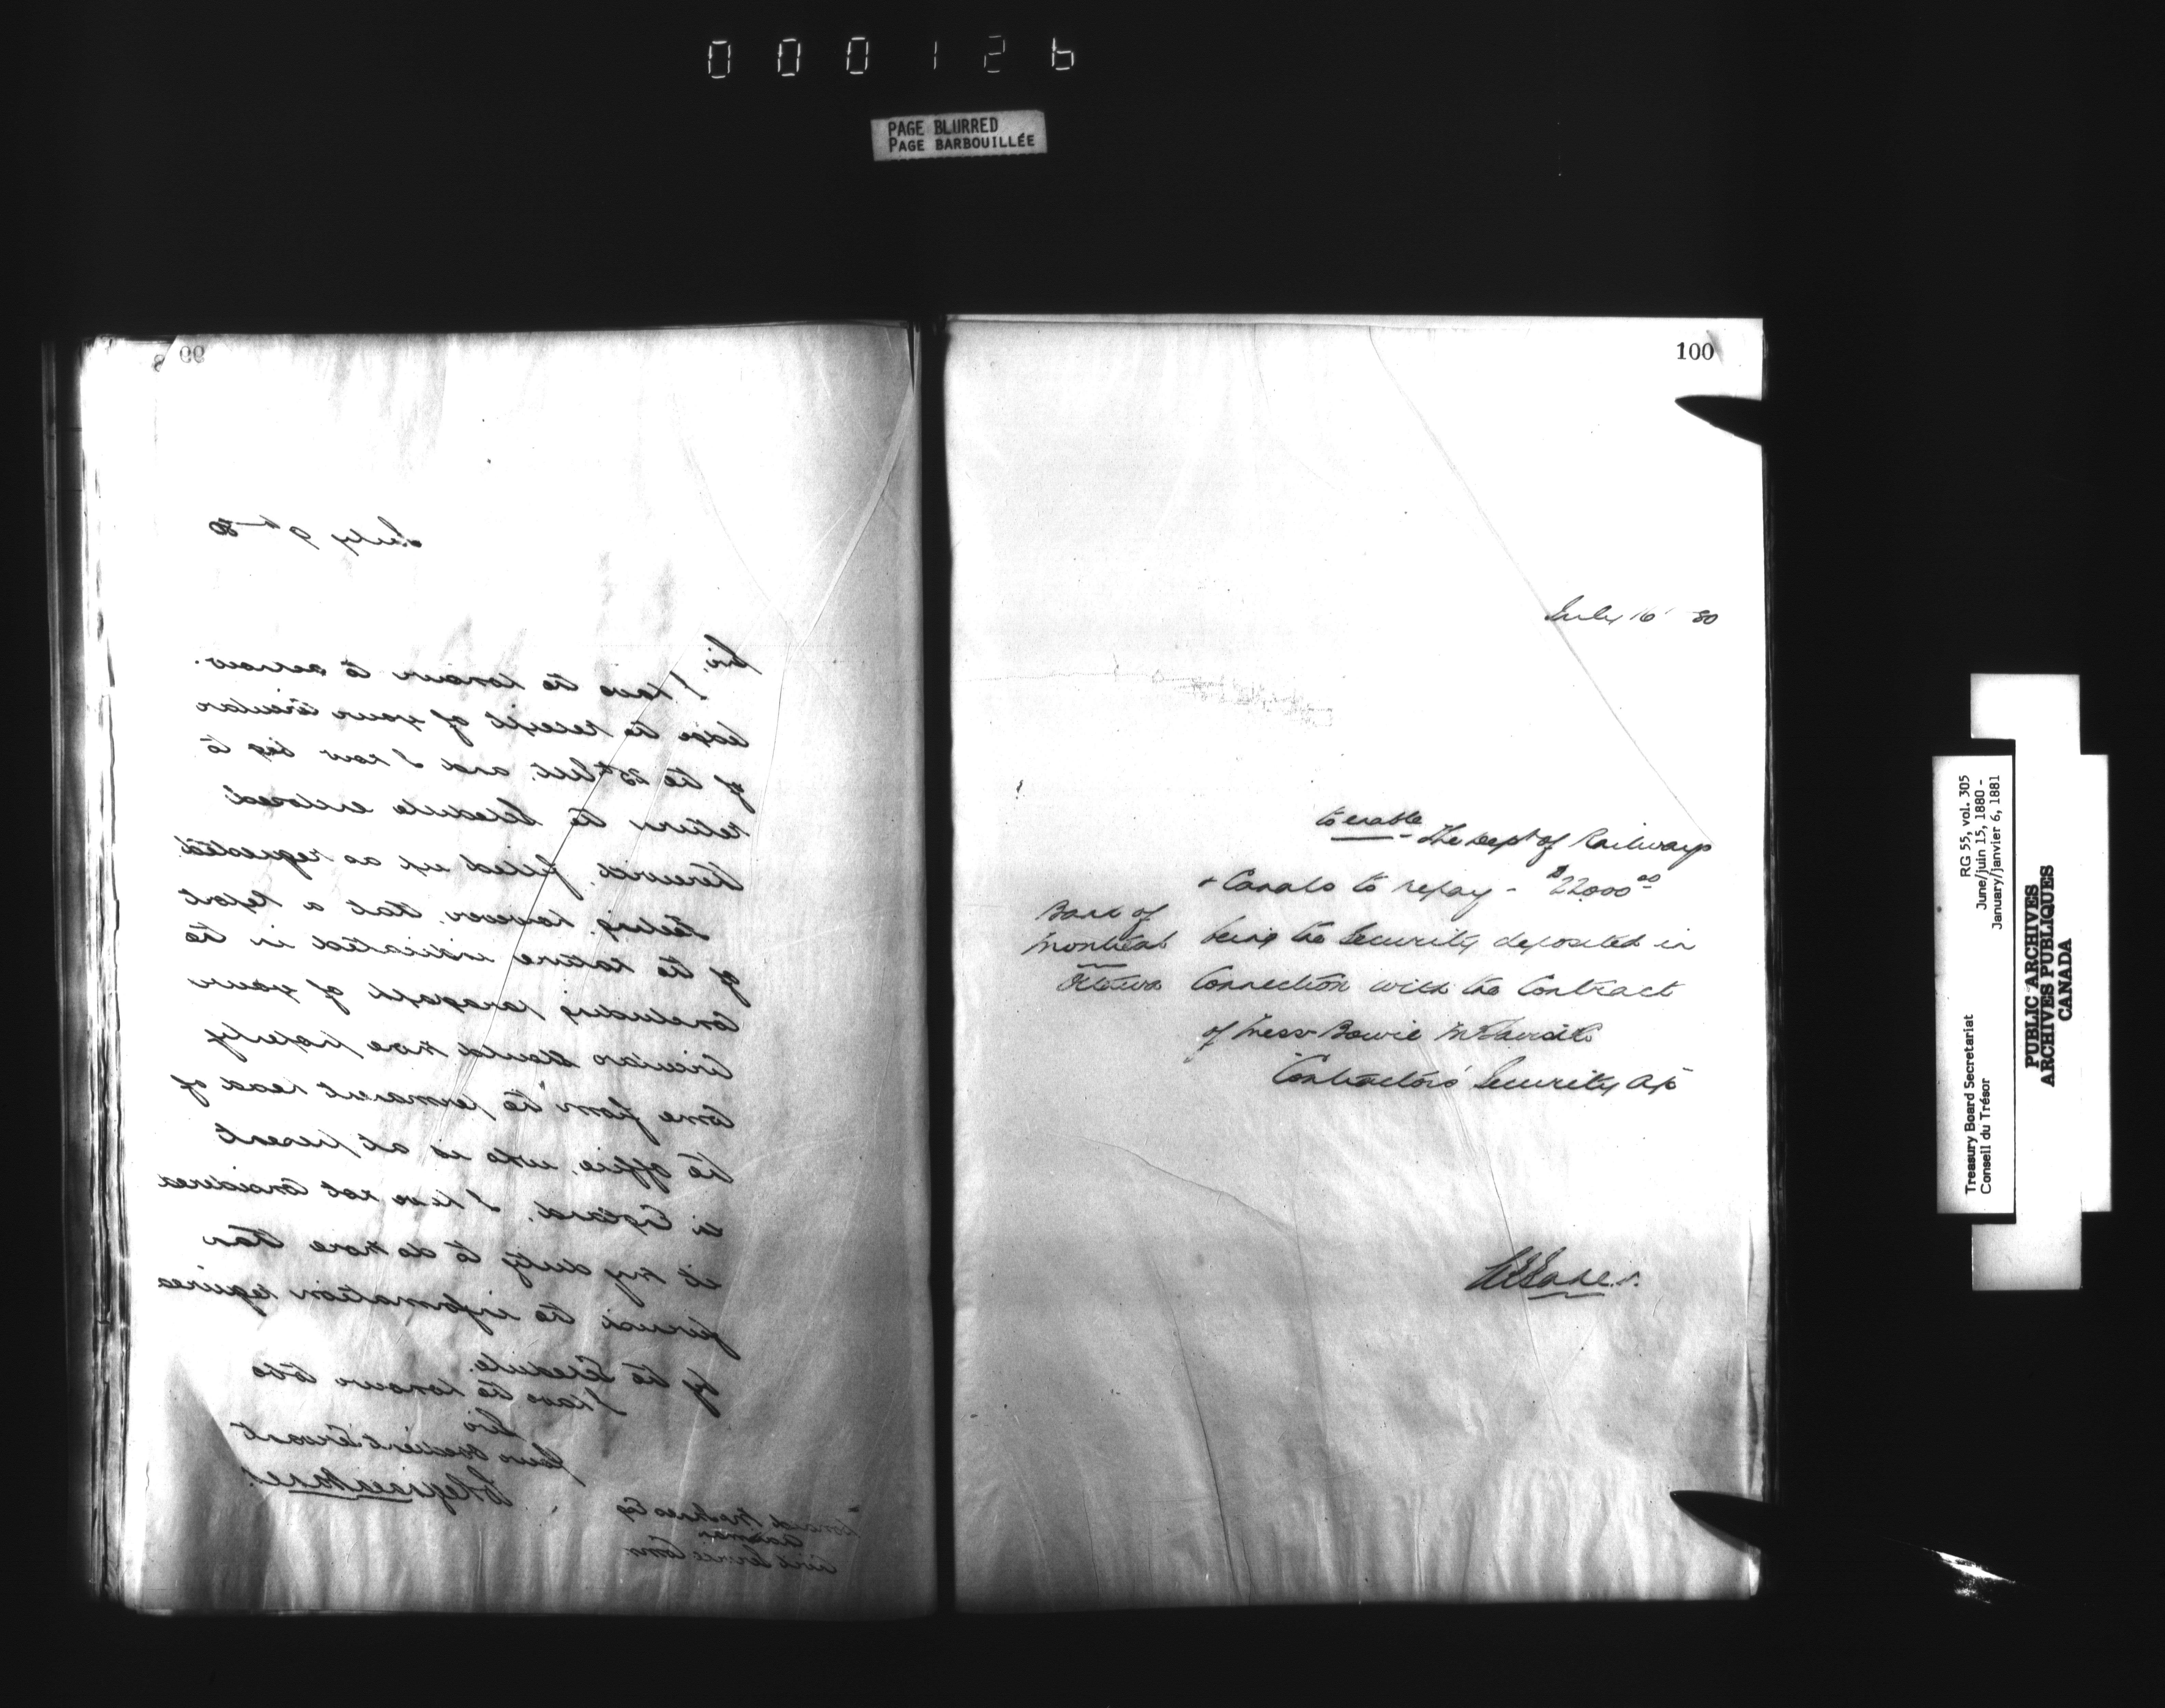 000126
PAGE BLURRED
PAGE BARBOUILLÉE
99
July 9th 80
Sir,
I have the honour to acknow-
ledge the receipt of your Circular
of the 25th Ult. and I now beg to
return the Schedule enclosed
therewith, filled up as requested.
Feeling, however, that a report
of the nature indicated in the
concluding paragraph of your
Circular should more properly
come from the permanent head of
the office, who is at present
in England, I have not considered
it my duty to do more than
furnish the information required
by the Schedule.
I have the honour to be
Sir
Your obedient Servant
Esq
Civil Service Comn
100
July 16 80
to enable - The Dept of Railways
& Canals to repay - $22,000 00
Bank of
Montreal
Ottawa
being the Security deposited in
Connection with the Contract
of Mess Bowie
Contractors' Security a/c
RG 55, vol. 305
June/juin 15, 1880 -
January/janvier 6, 1881
Treasury Board Secretariat
Conseil du Trésor
PUBLIC ARCHIVES
ARCHIVES PUBLIQUES
CANADA